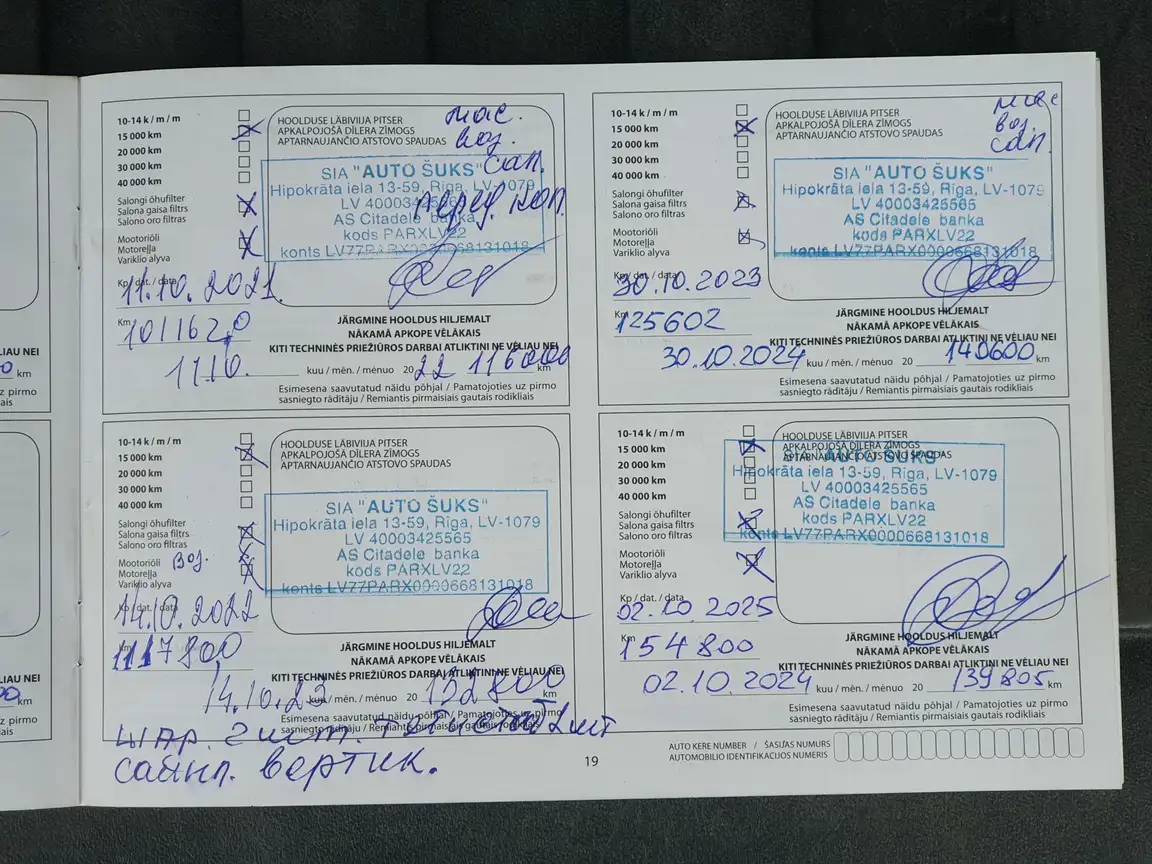 10-14 k / m / m
15 000 km
20 000 km
30 000 km
40 000 km
Salongi õhufilter
Salona gaisa filtrs
Salono oro filtras
Mootoriõli
Motoreļļa
Variklio alyva
HOOLDUSE LÄBIVIIJA PITSER
APKALPOJOŠĀ DĪLERA ZĪMOGS
APTARNAUJANČIO ATSTOVO SPAUDAS
мас.
воз.
сал.
перед. кол.
SIA "AUTO ŠUKS"
Hipokrāta iela 13-59, Rīga, LV-1079
LV 40003425565
AS Citadele banka
kods PARXLV22
konts LV77PARX0000668131018
Kp / dat. / data
11.10.2021.
Km
101162,0
JÄRGMINE HOOLDUS HILJEMALT
NĀKAMĀ APKOPE VĒLĀKAIS
KITI TECHNINĖS PRIEŽIŪROS DARBAI ATLIKTINI NE VĖLIAU NEI
11.10. kuu / mēn. / mėnuo 2022 116000 km
Esimesena saavutatud näidu põhjal / Patamatojoties uz pirmo
sasniegto rādītāju / Remiantis pirmaisiais gautais rodikliais
10-14 k / m / m
15 000 km
20 000 km
30 000 km
40 000 km
Salongi õhufilter
Salona gaisa filtrs
Salono oro filtras
Mootoriõli
Motoreļļa
Variklio alyva
HOOLDUSE LÄBIVIIJA PITSER
APKALPOJOŠĀ DĪLERA ZĪMOGS
APTARNAUJANČIO ATSTOVO SPAUDAS
мас
воз.
сал.
SIA "AUTO ŠUKS"
Hipokrāta iela 13-59, Rīga, LV-1079
LV 40003425565
AS Citadele banka
kods PARXLV22
konts LV77PARX0000668131018
Kp / dat. / data
30.10.2023
Km
125602
JÄRGMINE HOOLDUS HILJEMALT
NĀKAMĀ APKOPE VĒLĀKAIS
KITI TECHNINĖS PRIEŽIŪROS DARBAI ATLIKTINI NE VĖLIAU NEI
30.10.2024 kuu / mēn. / mėnuo 20 140600 km
Esimesena saavutatud näidu põhjal / Pamatojoties uz pirmo
sasniegto rādītāju / Remiantis pirmaisiais gautais rodikliais
10-14 k / m / m
15 000 km
20 000 km
30 000 km
40 000 km
Salongi õhufilter
Salona gaisa filtrs
Salono oro filtras
Mootoriõli
Motoreļļa
Variklio alyva
воз.
HOOLDUSE LÄBIVIIJA PITSER
APKALPOJOŠĀ DĪLERA ZĪMOGS
APTARNAUJANČIO ATSTOVO SPAUDAS
SIA "AUTO ŠUKS"
Hipokrāta iela 13-59, Rīga, LV-1079
LV 40003425565
AS Citadele banka
kods PARXLV22
konts LV77PARX0000668131018
Kp / dat. / data
14.10.2022
Km
117800
JÄRGMINE HOOLDUS HILJEMALT
NĀKAMĀ APKOPE VĒLĀKAIS
KITI TECHNINĖS PRIEŽIŪROS DARBAI ATLIKTINI NE VĖLIAU NEI
14.10.23 kuu / mēn. / mėnuo 20 132800 km
Esimesena saavutatud näidu põhjal / Pamatojoties uz pirmo
sasniegto rādītāju / Remiantis pirmaisiais gautais rodikliais
сайнл. вертик.
10-14 k / m / m
15 000 km
20 000 km
30 000 km
40 000 km
Salongi õhufilter
Salona gaisa filtrs
Salono oro filtras
Mootoriõli
Motoreļļa
Variklio alyva
HOOLDUSE LÄBIVIIJA PITSER
APKALPOJOŠĀ DĪLERA ZĪMOGS
APTARNAUJANČIO ATSTOVO SPAUDAS
SIA "AUTO ŠUKS"
Hipokrāta iela 13-59, Rīga, LV-1079
LV 40003425565
AS Citadele banka
kods PARXLV22
konts LV77PARX0000668131018
Kp / dat. / data
02.10.2025
Km
154800
JÄRGMINE HOOLDUS HILJEMALT
NĀKAMĀ APKOPE VĒLĀKAIS
KITI TECHNINĖS PRIEŽIŪROS DARBAI ATLIKTINI NE VĖLIAU NEI
02.10.2024 kuu / mēn. / mėnuo 20 139805 km
Esimesena saavutatud näidu põhjal / Pamatojoties uz pirmo
sasniegto rādītāju / Remiantis pirmaisiais gautais rodikliais
19
AUTO KERE NUMBER / ŠASIJAS NUMURS
AUTOMOBILIO IDENTIFIKACIJOS NUMERIS